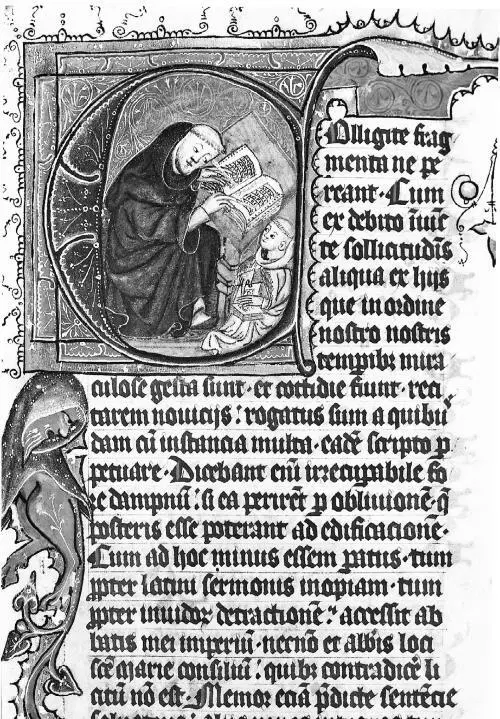 Olligite frag
menta ne pe
reant · Cum
ex debito iniūc
te sollicitudīs
aliqua ex hijs
que in ordine
nostro nostris
temp̄ibꝫ mira
culose gesta sunt · et cottidie fiunt · reci
tarem nouicijs : rogatus sum a quibus
dam cū instancia multa · eadē scripto p̱
petuare · Dicebant enī irrecup̱abile fo
re dampnū : si ea perirēt p̱ obliuionē · q̄
posteris esse poterant ad edificacionē ·
Cum ad hoc minus essem patus · tum
ꝓpter latini sermonis inopiam · tum
ꝓpter inuidoꝝ detractionē : accessit ab
batis mei imperiū · necnō et abbīs loci
scē marie consiliū : quibꝫ contradicē li
citū nō est · Memor eciā p̄dicte sentēcie